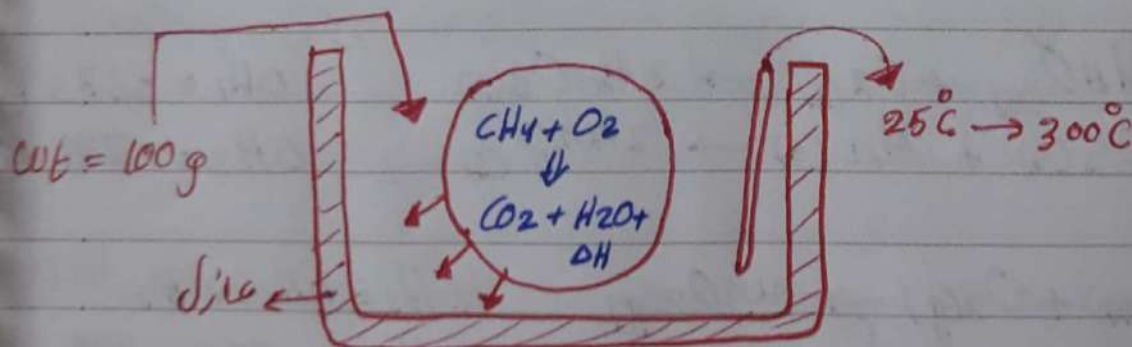 wt = 100 g
CH4 + O2
⇓
CO2 + H2O +
ΔH
25°C → 300°C
عازل